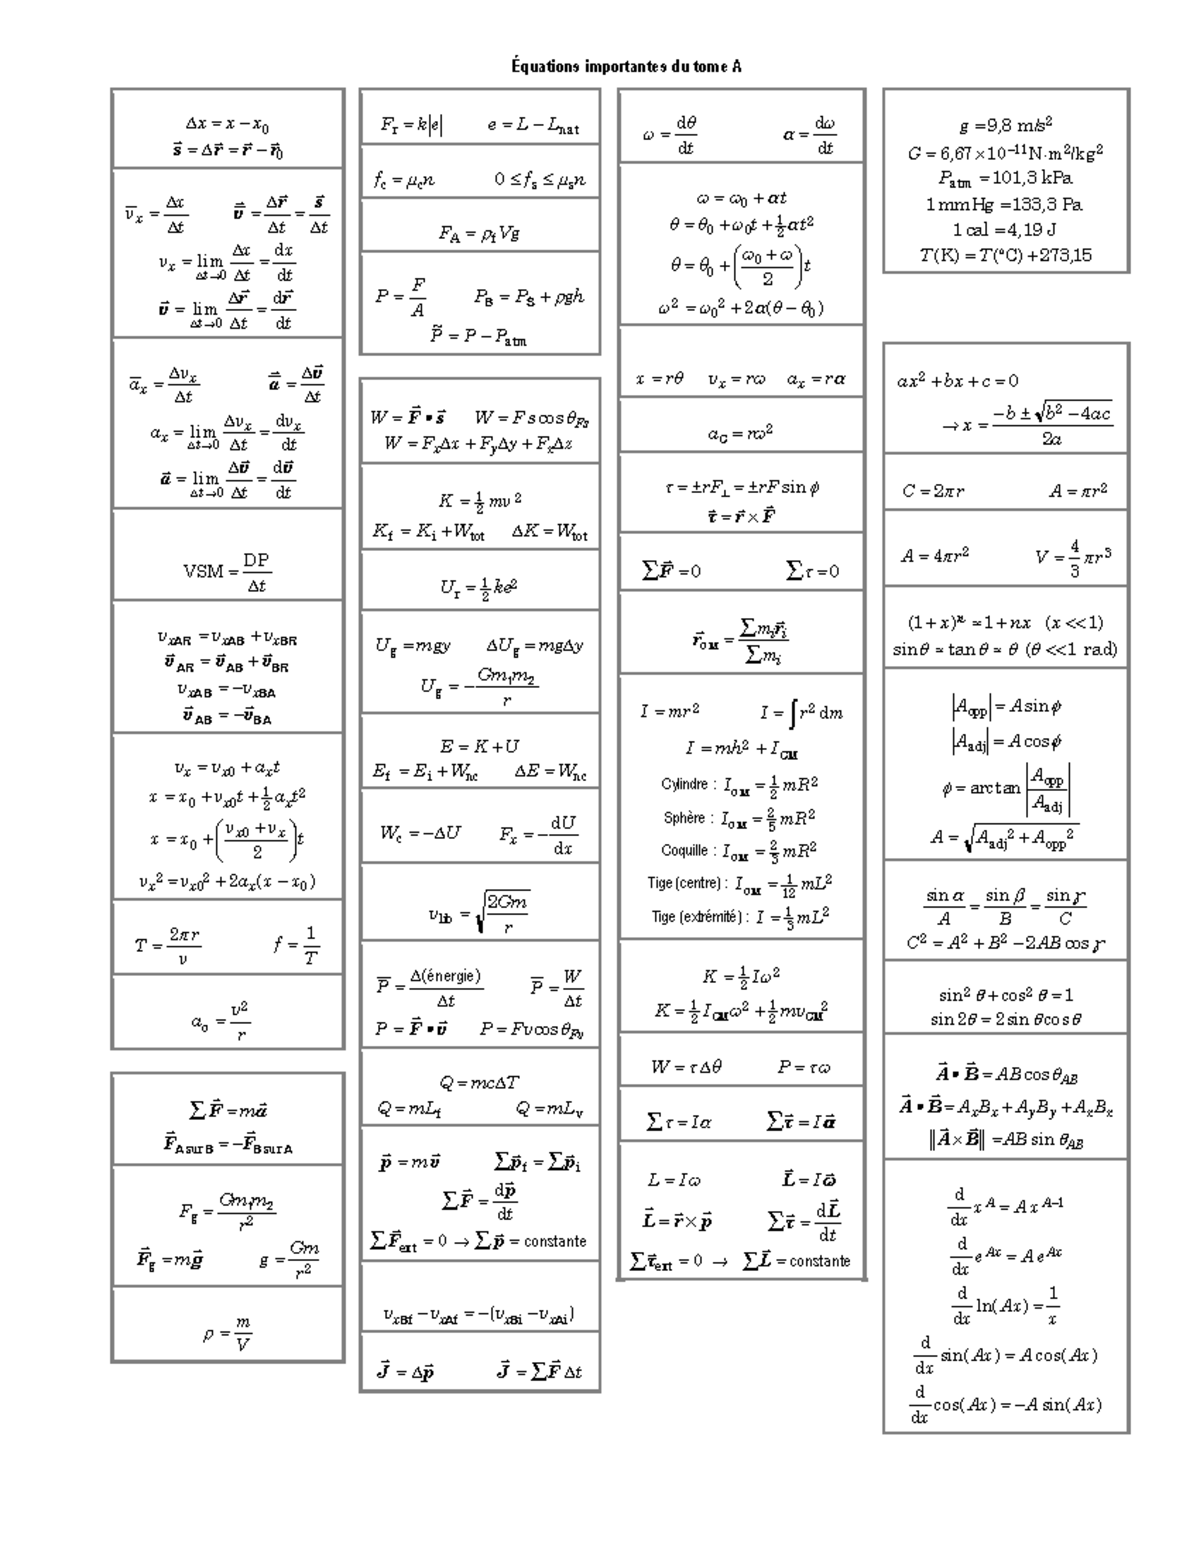 Équations importantes du tome A
Δx = x − x₀
s⃗ = Δr⃗ = r⃗ − r⃗₀
v̅ₓ = Δx/Δt    v⃗̅ = Δr⃗/Δt = s⃗/Δt
vₓ = lim(Δt→0) Δx/Δt = dx/dt
v⃗ = lim(Δt→0) Δr⃗/Δt = dr⃗/dt
a̅ₓ = Δvₓ/Δt    a⃗̅ = Δv⃗/Δt
aₓ = lim(Δt→0) Δvₓ/Δt = dvₓ/dt
a⃗ = lim(Δt→0) Δv⃗/Δt = dv⃗/dt
VSM = DP/Δt
v_xAR = v_xAB + v_xBR
v⃗_AR = v⃗_AB + v⃗_BR
v_xAB = −v_xBA
v⃗_AB = −v⃗_BA
vₓ = vₓ₀ + aₓt
x = x₀ + vₓ₀t + ½aₓt²
x = x₀ + ((vₓ₀ + vₓ)/2)t
vₓ² = vₓ₀² + 2aₓ(x − x₀)
T = 2πr/v    f = 1/T
a_C = v²/r
∑F⃗ = ma⃗
F⃗_A sur B = −F⃗_B sur A
F_g = Gm₁m₂/r²
F⃗_g = mg⃗    g = Gm/r²
ρ = m/V
F_r = k|e|    e = L − L_nat
f_c = μ_c n    0 ≤ f_s ≤ μ_s n
F_A = ρ_f Vg
P = F/A    P_B = P_S + ρgh
P̃ = P − P_atm
W = F⃗ • s⃗    W = Fs cos θ_Fs
W = FₓΔx + F_yΔy + FₓΔz
K = ½mv²
K_f = K_i + W_tot    ΔK = W_tot
U_r = ½ke²
U_g = mgy    ΔU_g = mgΔy
U_g = −Gm₁m₂/r
E = K + U
E_f = E_i + W_nc    ΔE = W_nc
W_c = −ΔU    Fₓ = −dU/dx
v_lib = √(2Gm/r)
P̅ = Δ(énergie)/Δt    P̅ = W/Δt
P = F⃗ • v⃗    P = Fv cos θ_Fv
Q = mcΔT
Q = mL_f    Q = mL_v
p⃗ = mv⃗    ∑p⃗_f = ∑p⃗_i
∑F⃗ = dp⃗/dt
∑F⃗_ext = 0 → ∑p⃗ = constante
v_xBf − v_xAf = −(v_xBi − v_xAi)
J⃗ = Δp⃗    J⃗ = ∑F⃗Δt
ω = dθ/dt    α = dω/dt
ω = ω₀ + αt
θ = θ₀ + ω₀t + ½αt²
θ = θ₀ + ((ω₀ + ω)/2)t
ω² = ω₀² + 2α(θ − θ₀)
x = rθ    vₓ = rω    aₓ = rα
a_C = rω²
τ = ±rF⊥ = ±rF sin ϕ
τ⃗ = r⃗ × F⃗
∑F⃗ = 0    ∑τ = 0
r⃗_CM = ∑mᵢr⃗ᵢ/∑mᵢ
I = mr²    I = ∫r² dm
I = mh² + I_CM
Cylindre : I_CM = ½mR²
Sphère : I_CM = ⅖mR²
Coquille : I_CM = ⅔mR²
Tige (centre) : I_CM = 1/12 mL²
Tige (extrémité) : I = ⅓mL²
K = ½Iω²
K = ½I_CM ω² + ½mv_CM²
W = τΔθ    P = τω
∑τ = Iα    ∑τ⃗ = Iα⃗
L = Iω    L⃗ = Iω⃗
L⃗ = r⃗ × p⃗    ∑τ⃗ = dL⃗/dt
∑τ⃗_ext = 0 → ∑L⃗ = constante
g = 9,8 m/s²
G = 6,67 × 10⁻¹¹ N·m²/kg²
P_atm = 101,3 kPa
1 mmHg = 133,3 Pa
1 cal = 4,19 J
T(K) = T(°C) + 273,15
ax² + bx + c = 0
→ x = (−b ± √(b² − 4ac))/2a
C = 2πr    A = πr²
A = 4πr²    V = 4/3 πr³
(1 + x)ⁿ ≈ 1 + nx (x << 1)
sin θ ≈ tan θ ≈ θ (θ << 1 rad)
|A_opp| = A sin ϕ
|A_adj| = A cos ϕ
ϕ = arctan |A_opp/A_adj|
A = √(A_adj² + A_opp²)
sin α/A = sin β/B = sin γ/C
C² = A² + B² − 2AB cos γ
sin² θ + cos² θ = 1
sin 2θ = 2 sin θ cos θ
A⃗ • B⃗ = AB cos θ_AB
A⃗ • B⃗ = AₓBₓ + A_yB_y + AₓBₓ
‖A⃗ × B⃗‖ = AB sin θ_AB
d/dx x^A = Ax^(A−1)
d/dx e^(Ax) = Ae^(Ax)
d/dx ln(Ax) = 1/x
d/dx sin(Ax) = A cos(Ax)
d/dx cos(Ax) = −A sin(Ax)